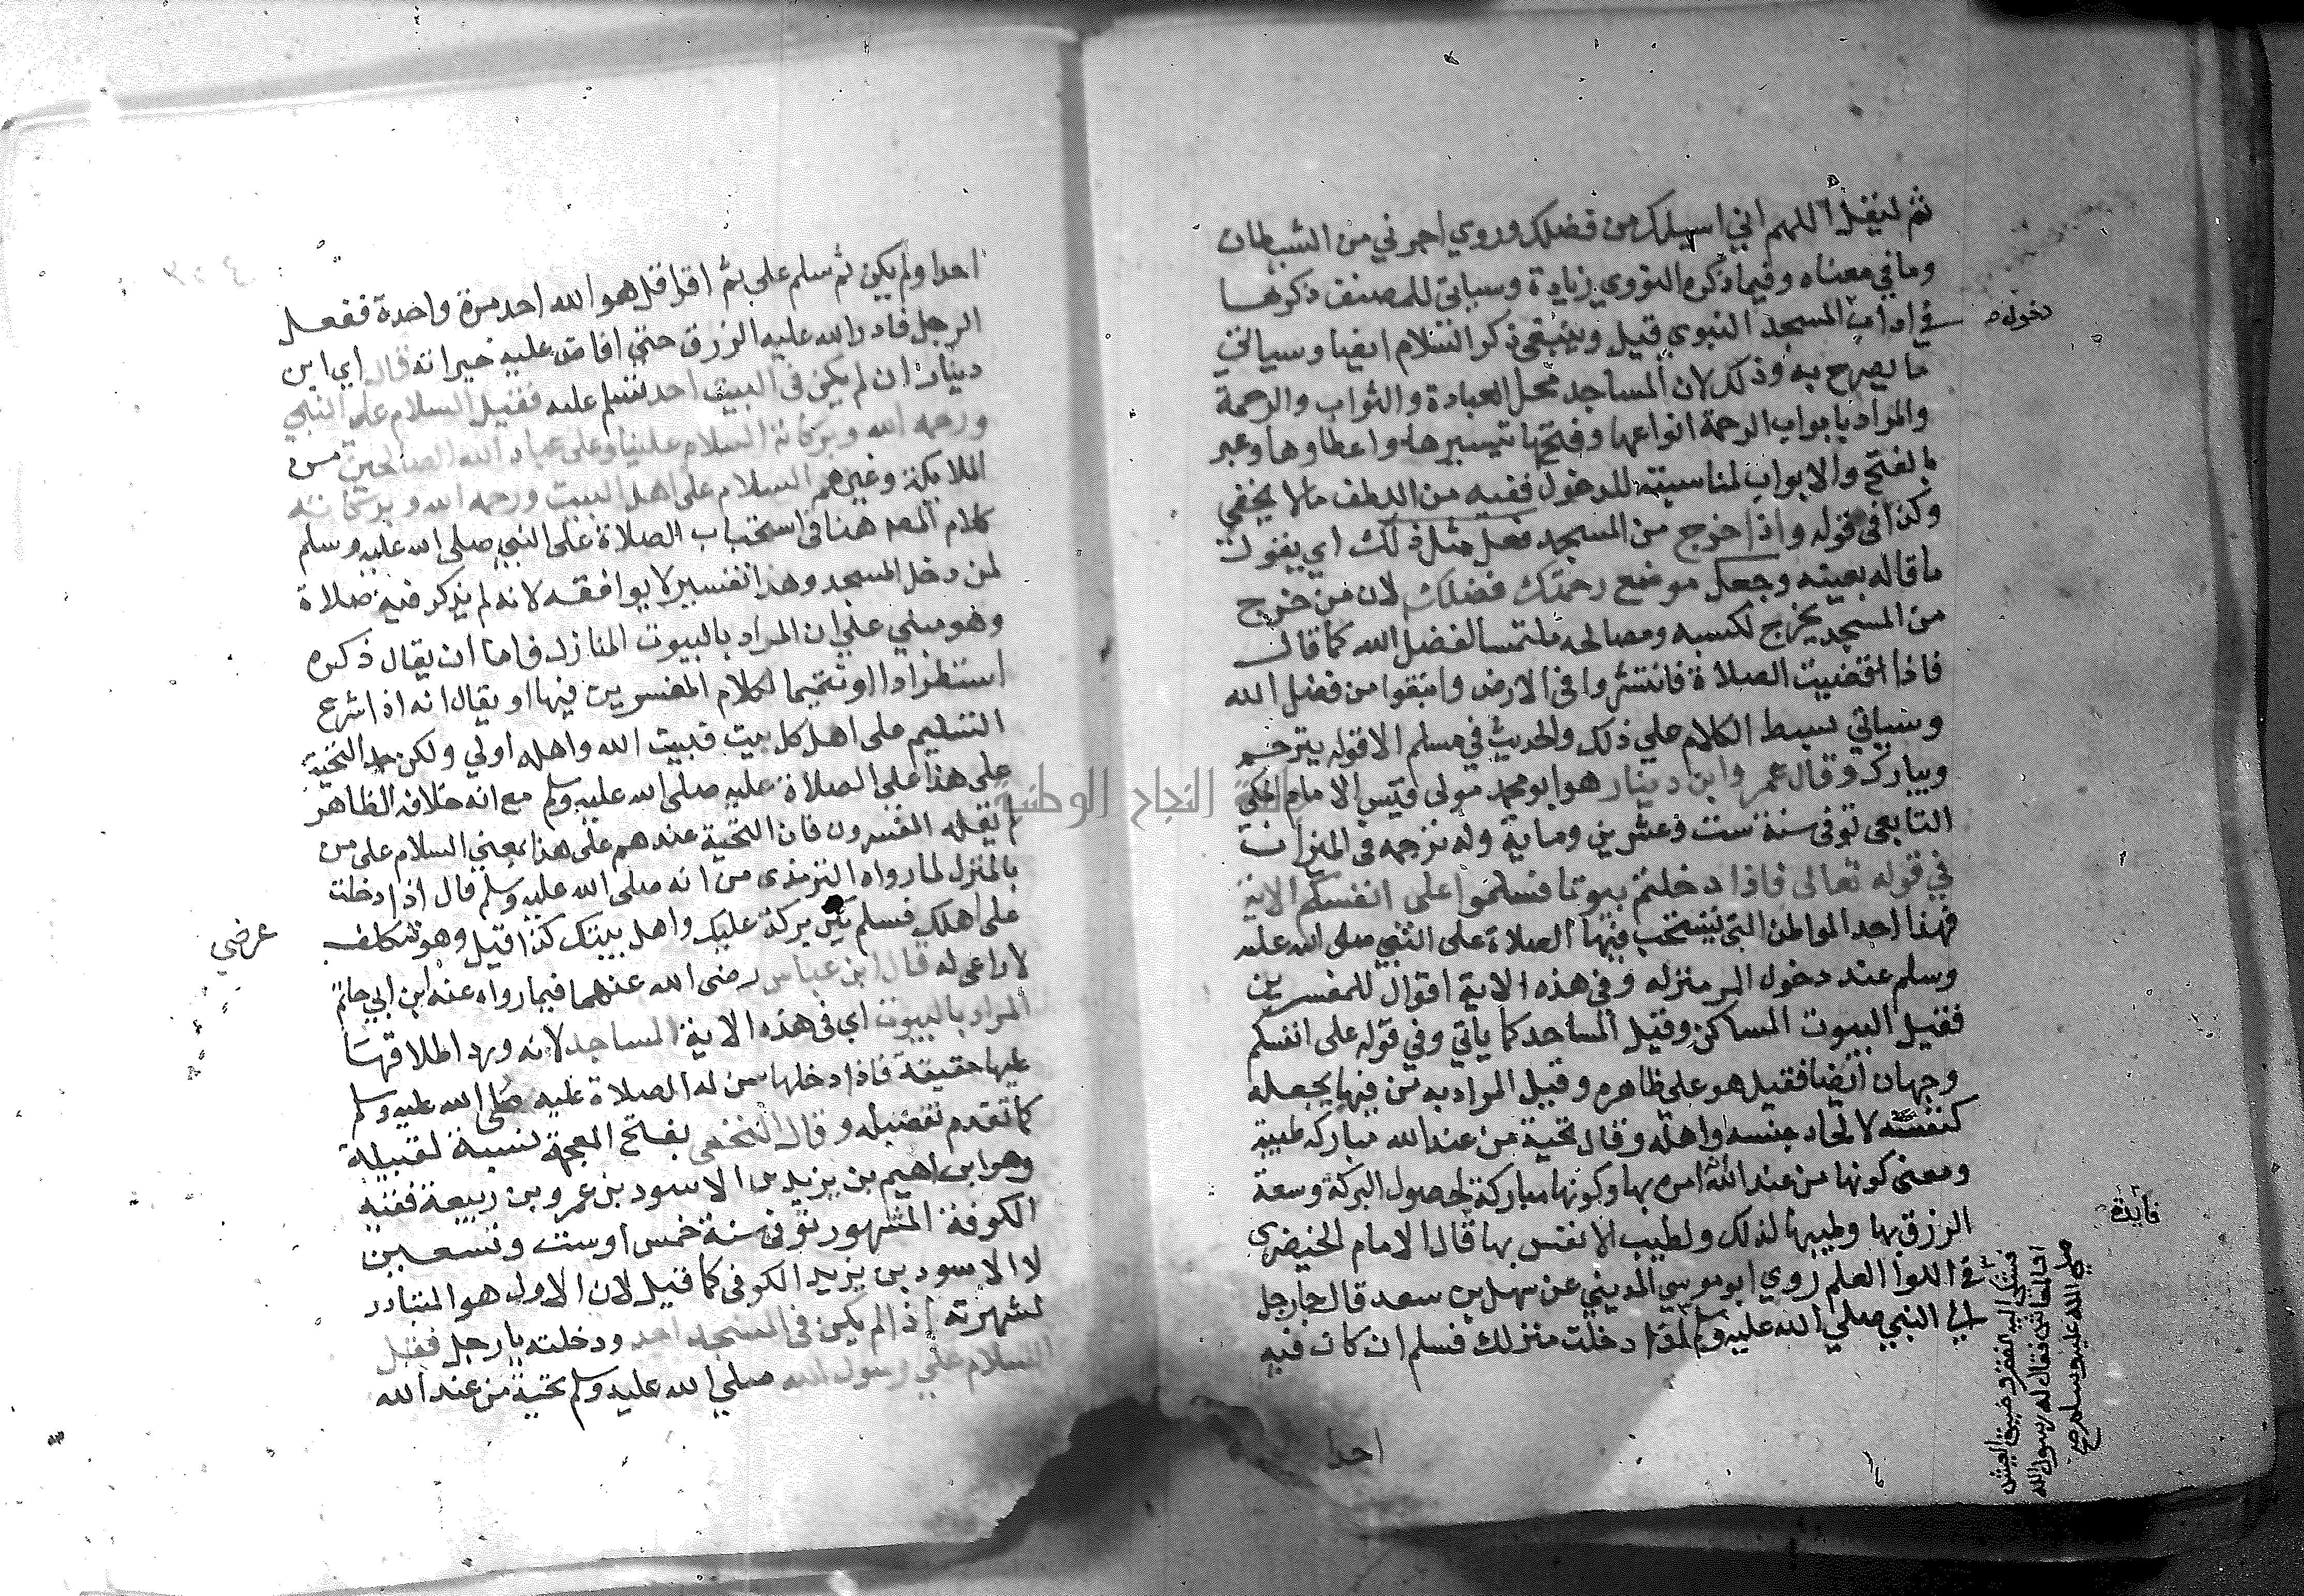 ثم ليقل اللهم اني اسيلك من فضلك وروي اجرني من الشيطان
وما في معناه وفيما ذكره النووي زيادة وسياتي للمصنف ذكرها
في اداب المسجد النبوي قيل وينبغي ذكر السلام ايضا وسياتي
دخول
ما يصرح به وذلك لان المساجد محل العبادة والثواب والرحمة
والمراد بابواب الرحمة انواعها وفتحها تيسيرها واعطاوها وعبر
بالفتح والابواب لمناسبته للدخول ففيه من اللطف مالا يخفي
وكذا في قوله واذا خرج من المسجد فعل مثل ذلك اي يقول
ما قاله بعينه وجعل موضع رحمتك فضلك لان من خرج
من المسجد يخرج لكسبه ومصالحه ملتمسا لفضل الله كما قال
فاذا قضيت الصلاة فانتشروا في الارض وابتغوا من فضل الله
وسياتي بسط الكلام علي ذلك والحديث في مسلم الا قوله يترحم
ويبارك وقال عمرو ابن دينار هو ابو محمد مولى قيس الامام المكي
التابعي توفى سنة ست وعشرين وماية وله ترجمه في الميزان
في قوله تعالى فاذا دخلتم بيوتا فسلموا على انفسكم الاية
فهذا احد المواطن التي يستحب فيها الصلاة على النبي صلى الله عليه
وسلم عند دخول المر منزله وفي هذه الاية اقوال للمفسرين
فقيل البيوت المساكن وقيل المساجد كما ياتي وفي قوله على انفسكم
وجهان ايضا فقيل هو على ظاهره وقيل المراد به من فيها يجعله
كنفسه لاتحاد جنسه واهله وقال تحية من عند الله مباركه طيبة
ومعنى كونها من عند الله امره بها وكونها مباركة لحصول البركة وسعة
الرزق بها وطيبها لذلك ولطيب الانفس بها قال الامام الخيضري
فايدة
في اللوا العلم روي ابو موسي المديني عن سهل بن سعد قال جا رجل
الي النبي صلي الله عليه وسلم اذا دخلت منزلك فسلم ان كان فيه
فشكى اليه الفقر وضيق العيش
او المعاش فقال له رسول الله
صلى الله عليه وسلم صح
احدا
احدا ولم يكن ثم سلم على ثم اقرا قل هو الله احد مرة واحدة ففعل
الرجل فادر الله عليه الرزق حتي افاض عليه خيرانه قال اي ابن
دينار ان لم يكن في البيت احد تسلم عليه فقيل السلام على النبي
ورحمه الله وبركاته السلام علينا وعلى عباد الله الصالحين من
الملايكة وغيرهم السلام على اهل البيت ورحمه الله وبركاته
كلام المصـ هنا في استحباب الصلاة على النبي صلى الله عليه وسلم
لمن دخل المسجد وهذا تفسير لا يوافقه لانه لم يذكر فيه صلاة
وهو مبني على ان المراد بالبيوت المنازل فاما ان يقال ذكره
استطرادا او تتميما لكلام المفسرين فيها او يقال انه اذا شرع
التسليم على اهل كل بيت فبيت الله واهله اولي ولكن حمل التحية
على هذا على الصلاة عليه صلى الله عليه وسلم مع انه خلاف الظاهر
لم يقله المفسرون فان التحية عندهم على هذا بمعني السلام على من
بالمنزل لما رواه الترمذي من انه صلى الله عليه وسلم قال اذا دخلت
على اهلك فسلم يكن بركة عليك واهل بيتك كذا قيل وهو تكلف
عرضي
لا داعي له قال ابن عباس رضى الله عنهما فيما رواه عنه ابن ابي حاتم
المراد بالبيوت اي في هذه الاية المساجد لانه ورد اطلاقها
عليها حقيقة فاذا دخلها سن له الصلاة عليه صلى الله عليه وسلم
كما تقدم تفضيله وقال النخعي بفتح المعجمة نسبة لقبيلة
وهو ابراهيم بن يزيد بن الاسود بن عمرو بن ربيعة فقيه
الكوفة المشهور توفى سنة خمس او ست وتسعين
لا الاسود بن يزيد الكوفي كما قيل لان الاول هو المتبادر
لشهرته اذا لم يكن في المسجد احد ودخلته يا رجل فقل
السلام علي رسول الله صلي الله عليه وسلم تحية من عند الله
النجاح الوطنية